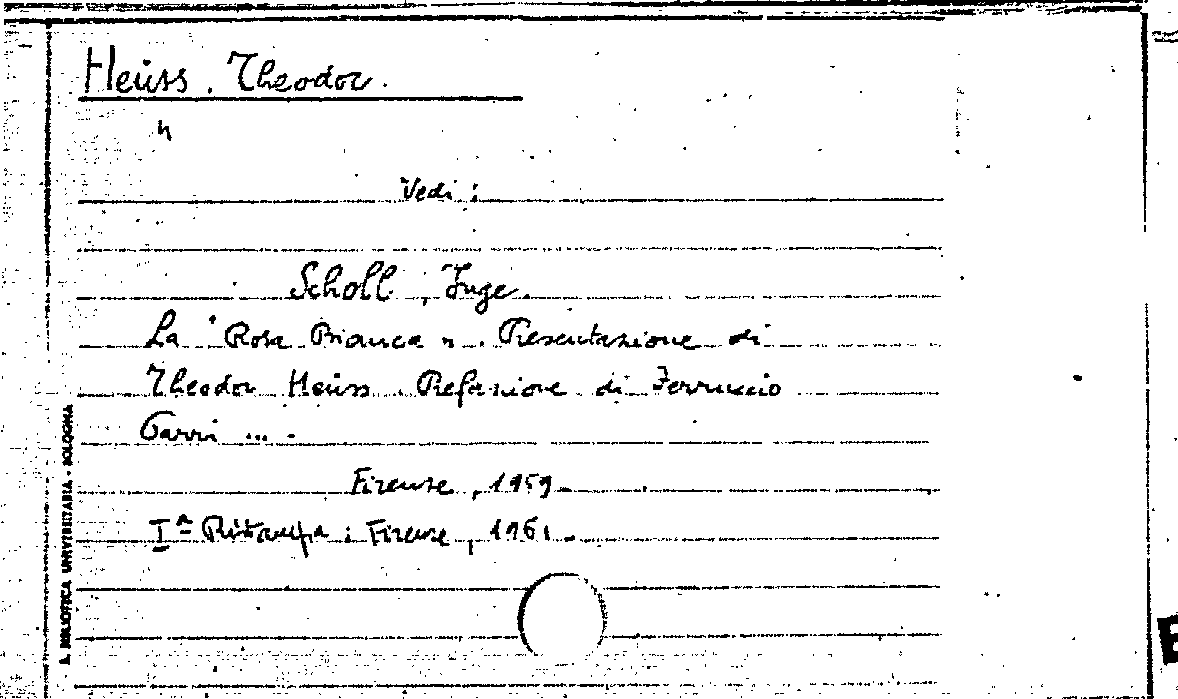 Heuss, Theodor.
"
Vedi:
Scholl, Inge.
La "Rosa Bianca". Presentazione di
Theodor Heuss. Prefazione di Ferruccio
Parri ... -
Firenze, 1959.
Iª Ristampa: Firenze, 1961.
B. BIBLIOTECA UNIVERSITARIA - BOLOGNA